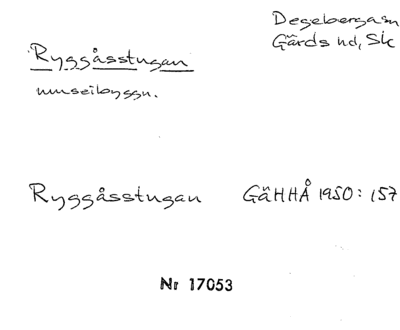 Degeberga sn
Gärds hd, Sk
Ryggåsstugan
museibyggn.
Ryggåsstugan GäHHÅ 1950:157
Nr 17053